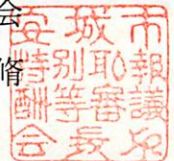 会
脩
安城市
特別職報
酬等審議
会長印